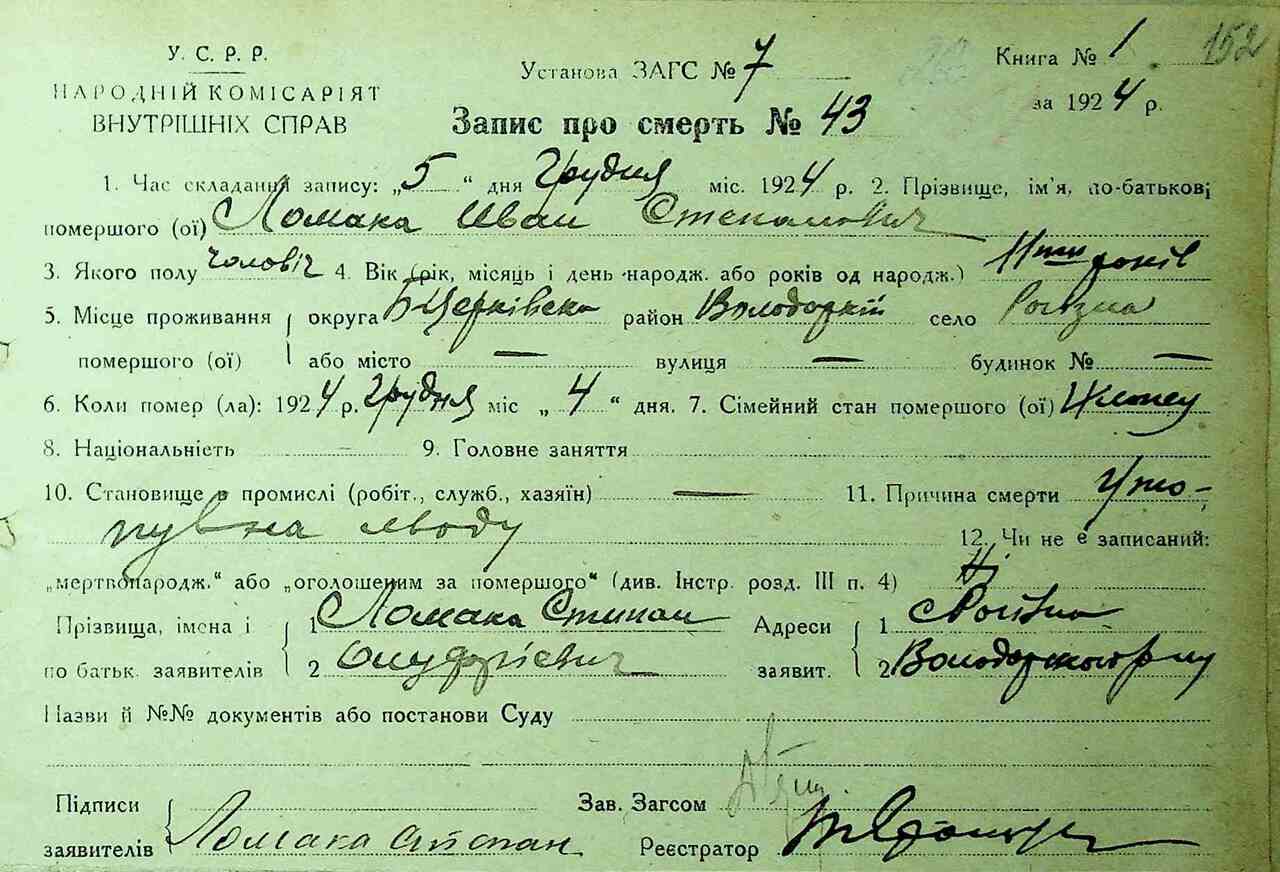 У. С. Р. Р.
НАРОДНІЙ КОМІСАРІЯТ
ВНУТРІШНІХ СПРАВ
Установа ЗАГС № 7
Книга № 1
152
за 1924 р.
Запис про смерть № 43
1. Час складання запису: „5“ дня Грудня міс. 1924 р. 2. Прізвище, ім'я, по-батькові
помершого (ої) Ломака Иван Степанович
3. Якого полу чоловіч 4. Вік (рік, місяць і день народж. або років од народж.) 11ти років
5. Місце проживання округа БЦерківська район Володаркій село Рогізна
помершого (ої) або місто — вулиця — будинок № —
6. Коли помер (ла): 1924 р. Грудня міс „4“ дня. 7. Сімейний стан помершого (ої)
8. Національність 9. Головне заняття
10. Становище в промислі (робіт., служб., хазяїн) — 11. Причина смерти
12. Чи не є записаний:
„мертвонародж.“ або „оголошеним за помершого“ (див. Інстр. розд. III п. 4) Ні
Прізвища, імена і 1 Ломака Степан Адреси 1
по батьк. заявителів 2 заявит. 2
Назви й №№ документів або постанови Суду
Підписи Зав. Загсом
заявителів Ломака Степан Реєстратор